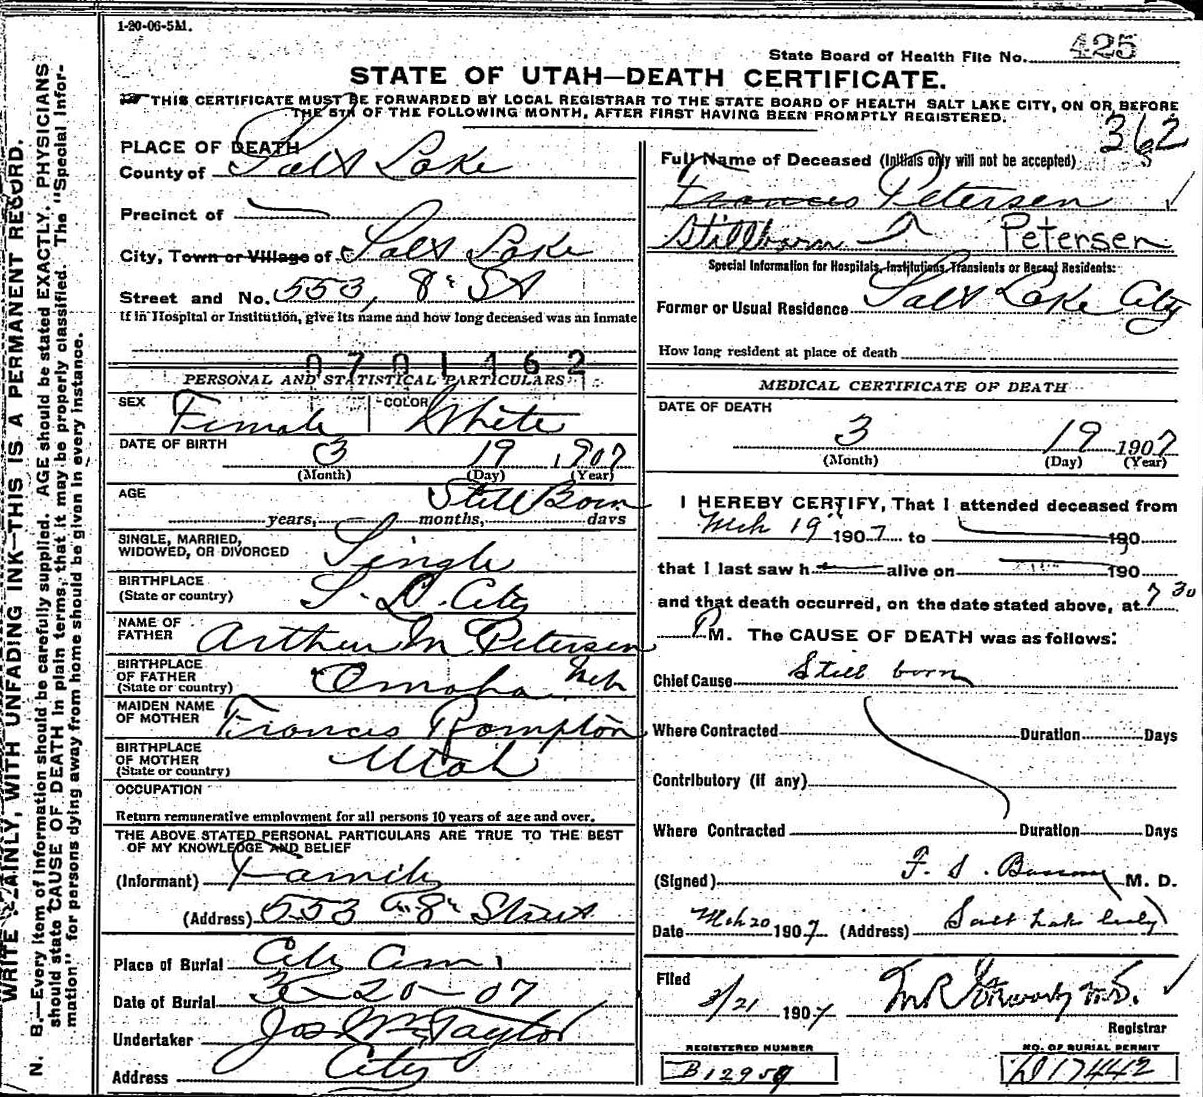 1-20-06-5M.
State Board of Health File No. 425
STATE OF UTAH—DEATH CERTIFICATE.
THIS CERTIFICATE MUST BE FORWARDED BY LOCAL REGISTRAR TO THE STATE BOARD OF HEALTH SALT LAKE CITY, ON OR BEFORE
THE 5TH OF THE FOLLOWING MONTH, AFTER FIRST HAVING BEEN PROMPTLY REGISTERED.
362
PLACE OF DEATH
County of Salt Lake
Precinct of
City, Town or Village of Salt Lake
Street and No. 553, 8th St
If in Hospital or Institution, give its name and how long deceased was an inmate
0701162
PERSONAL AND STATISTICAL PARTICULARS
SEX Female COLOR White
DATE OF BIRTH 3 19 1907
(Month) (Day) (Year)
AGE Still Born
years, months, days
SINGLE, MARRIED,
WIDOWED, OR DIVORCED Single
BIRTHPLACE
(State or country) S. L. City
NAME OF
FATHER Arthur M Petersen
BIRTHPLACE
OF FATHER
(State or country) Omaha Neb
MAIDEN NAME
OF MOTHER Frances Rompton
BIRTHPLACE
OF MOTHER
(State or country) Utah
OCCUPATION
Return remunerative employment for all persons 10 years of age and over.
THE ABOVE STATED PERSONAL PARTICULARS ARE TRUE TO THE BEST
OF MY KNOWLEDGE AND BELIEF
(Informant) Family
(Address) 553 8th Street
Place of Burial City Cem.
Date of Burial 3-20-07
Undertaker Jos Wm Taylor
Address City
Full Name of Deceased (Initials only will not be accepted)
Frances Petersen
Stillborn Petersen
Special Information for Hospitals, Institutions, Transients or Recent Residents:
Former or Usual Residence Salt Lake City
How long resident at place of death
MEDICAL CERTIFICATE OF DEATH
DATE OF DEATH
3 19 1907
(Month) (Day) (Year)
I HEREBY CERTIFY, That I attended deceased from
Mch 19" 1907 to 190
that I last saw h alive on 190
and that death occurred, on the date stated above, at 7 30
P M. The CAUSE OF DEATH was as follows:
Chief Cause Still born
Where Contracted Duration Days
Contributory (if any)
Where Contracted Duration Days
(Signed) F. S. M. D.
Date Mch 20 1907 (Address) Salt Lake City
Filed
3/21 1907 M.D.
Registrar
REGISTERED NUMBER
B12959
NO. OF BURIAL PERMIT
D17442
WRITE PLAINLY, WITH UNFADING INK—THIS IS A PERMANENT RECORD.
N. B.—Every item of information should be carefully supplied. AGE should be stated EXACTLY. PHYSICIANS
should state CAUSE OF DEATH in plain terms, that it may be properly classified. The "Special Infor-
mation" for persons dying away from home should be given in every instance.